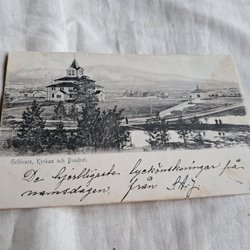 Gellivare, Kyrkan och Dundret.
De hjertligaste lyckönskningar på
namsdagen. från